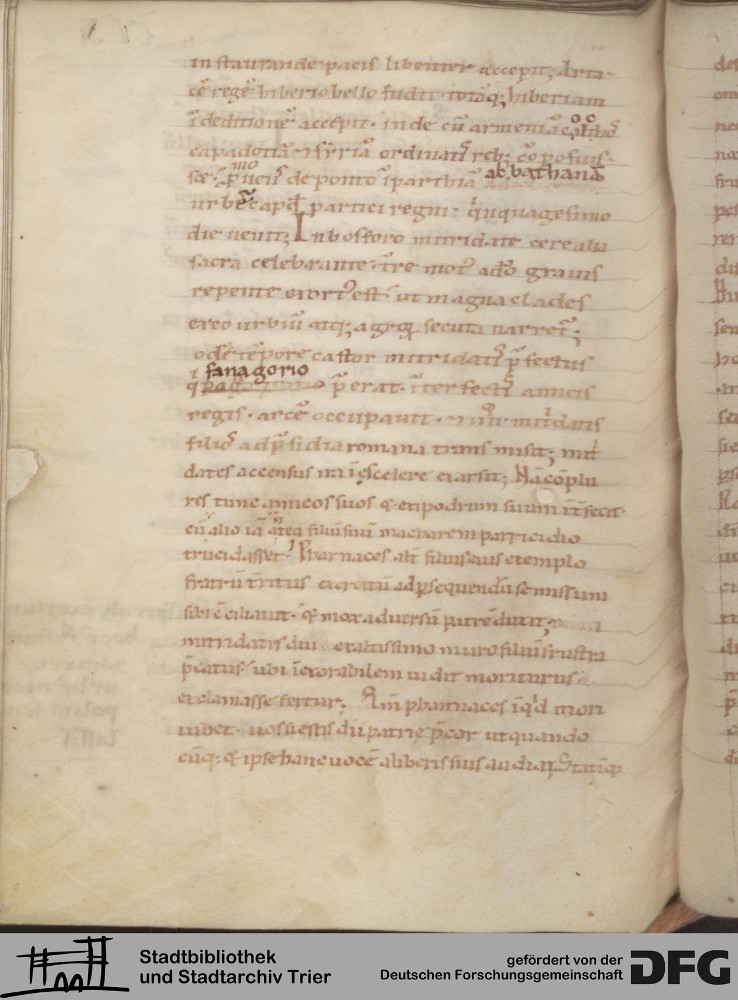 instaurande pacis libenter accepit; Arta-
cē regē hiberie bello fudit totāq; hiberiam
ī deditionē accepit. inde cū armeniā colchos
capadotiā ⁊ syriā ordinatis
de ponto ī parthiā abbathanas
urbē caput partici regni quinquagesimo
die venit; In bosforo mitridate cerealia
sacra celebrante terre mot' adeo gravis
repente exort' est. ut magna clades
ex eo urbiū atq; agroꝝ secuta narret̄;
eodē tēpore castor mitridatis p̄fectus
q̄ fanagorio p̄erat. īterfectis amicis
regis. arcē occupavit. ⁊ mit̄datis
filios ad p̄sidia romana transmisit; mit̄
dates accensus ira ī scelere exarsit; Nā cōplu
res tunc amicos suos & exipodrum suum īt̄fecit.
cū alio iā antea filiū suū macharem parricidio
trucidasset. Pharnaces alt̄ filius eius exemplo
fratrū t̄ritus exercitū ad ꝑsequendū se missum
sibi ciliavit. & mox adversū patrē duxit;
mitridatis diu ex altissimo muro filiū frustra
p̄catus. ubi īexorabilem vidit moriturus
exclamasse fertur. Qm̄ pharnaces īq'd mori
iubet. vos si estis dii patrie p̄cor ut quando
cūq; & ipse hanc vocē a liberis suis audiat; Statiq;
Stadtbibliothek
und Stadtarchiv Trier
gefördert von der
Deutschen Forschungsgemeinschaft
DFG